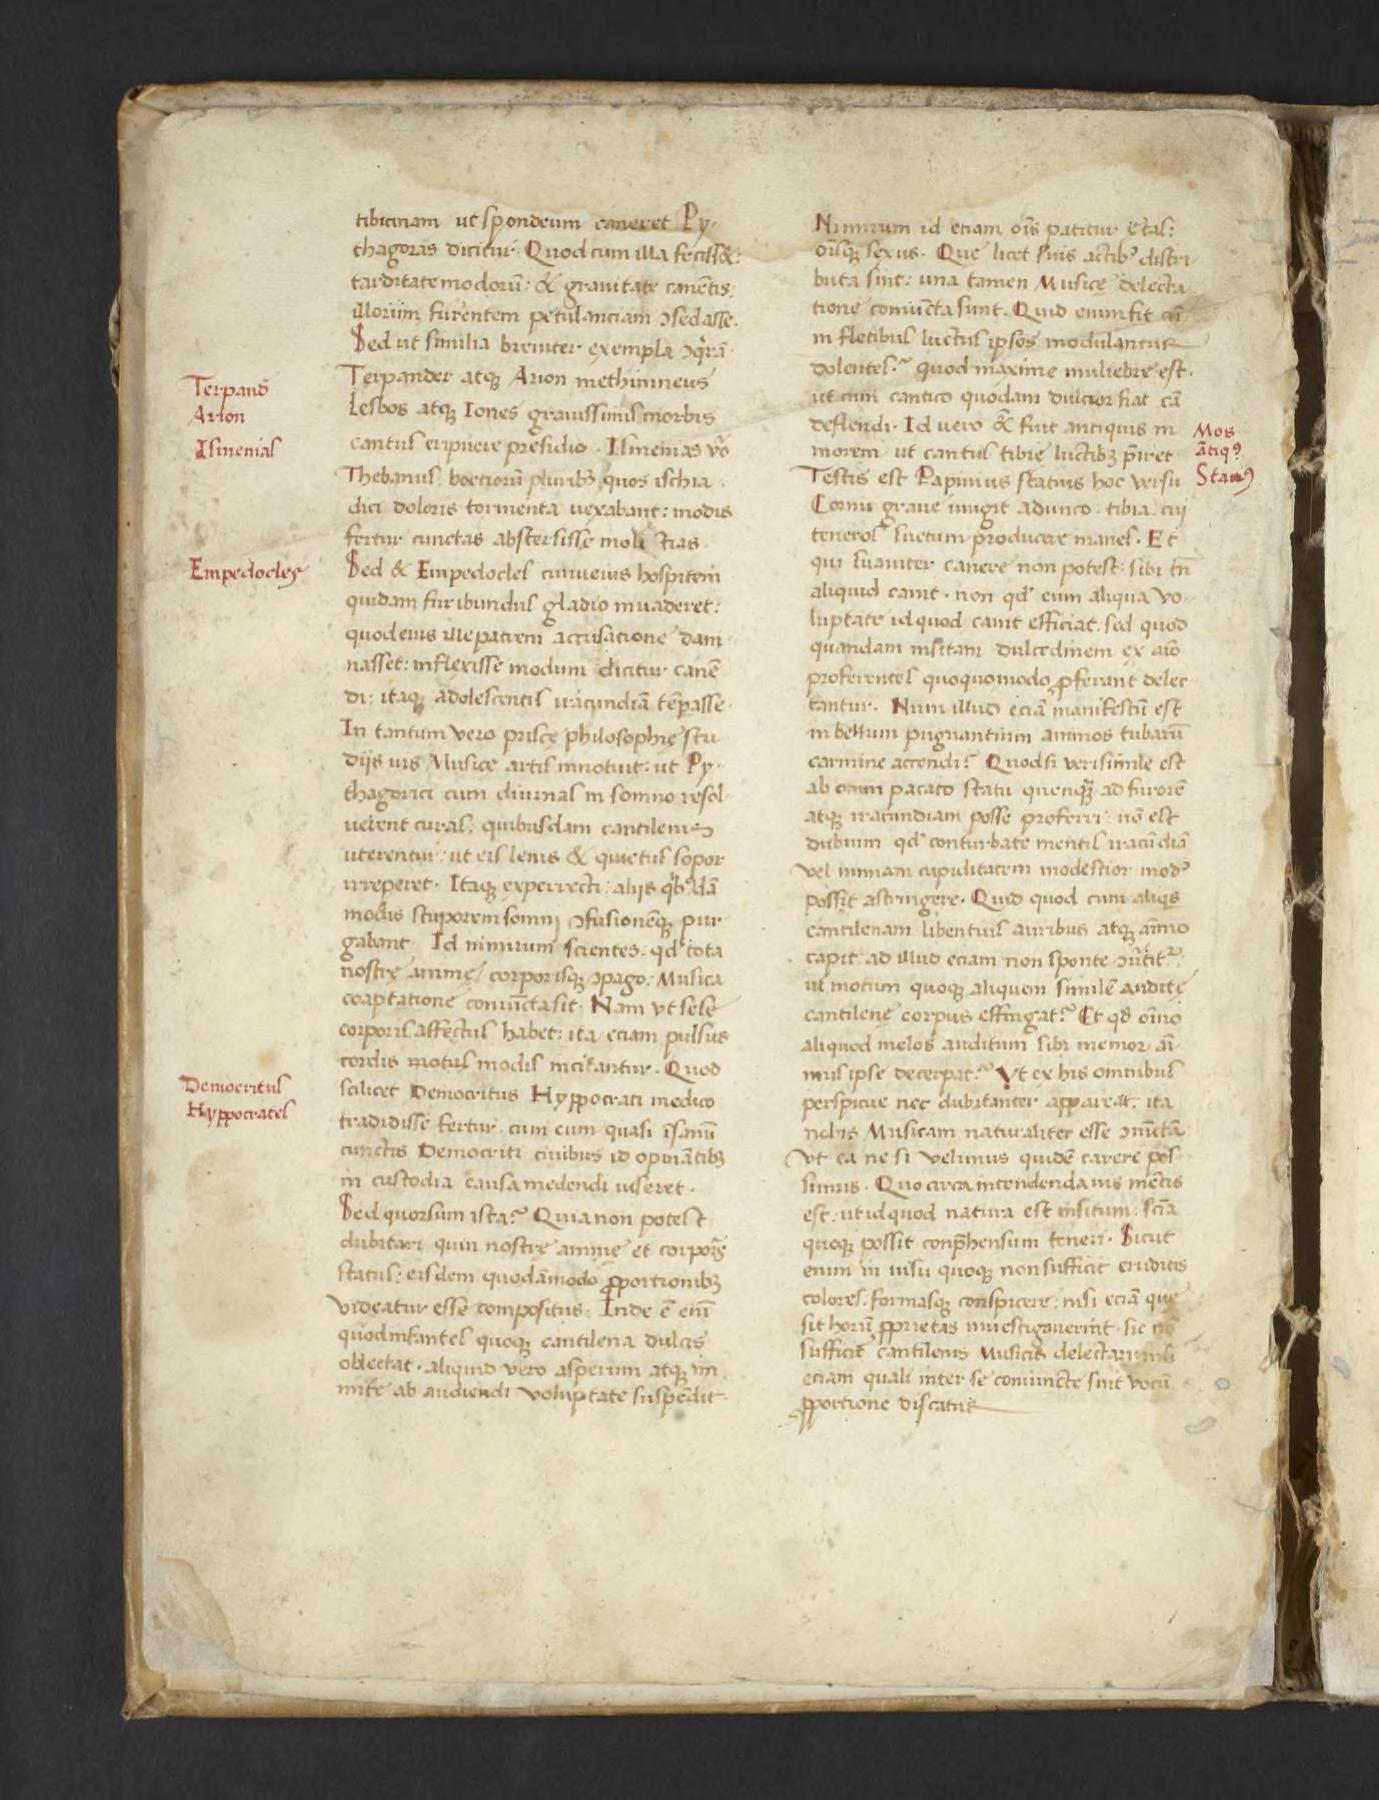 tibicinam ut spondeum caneret Py-
thagoras dicitur. Quod cum illa feciss&:
tarditate modorū: & grauitate canētis:
illorum furentem petulanciam ɔsedasse.
Sed ut similia breuiter exempla ɔq̄rā
Terpander atqꝫ Arion methimneus
Lesbos atqꝫ Iones grauissimis morbis
cantus eripuere presidio. Ismenias vō
Thebanus boetiorū pluribꝫ quos ischia
dici doloris tormenta uexabant: modis
fertur cunctas abstersisse molestias.
Sed & Empedocles cum eius hospitem
quidam furibundus gladio inuaderet:
quod eius ille patrem accusatione dam
nasset: inflexisse modum dicitur canē
di: itaqꝫ adolescentis iracundiā tēpasse.
In tantum vero priscę philosophię stu
dijs uis Musice artis innotuit: ut Py-
thagorici cum diurnas in somno resol
uerent curas: quibusdam cantilenis
uterentur: ut eis lenis & quietus sopor
irreperet. Itaqꝫ experrecti: alijs qb'dā
modis stuporem somnj ɔfusionēqꝫ pur
gabant. Id nimirum scientes. qd' tota
nostrę animę corporisqꝫ ɔpago: Musica
coaptatione coniūcta sit. Nam vt sese
corporis affectus habet: ita eciam pulsus
cordis motus modis incitantur. Quod
scilicet Democritus Hyppocrati medico
tradidisse fertur. cum eum quasi īsanū
cunctis Democriti ciuibus id opināt­ibꝫ
in custodia causa medendi uiseret.
Sed quorsum ista? Quia non potest
dubitari quin nostrę animę et corporis
status: eisdem quodāmodo ꝓportionibꝫ
videatur esse compositus. Inde ē enī
quod infantes quoqꝫ cantilena dulcis
oblectat. aliquid vero asperum atqꝫ im
mite ab audiendi voluptate suspēdit.
Terpand̄
Arion
Ismenias
Empedocles
Democritus
Hyppocrates
Nimirum id eciam oīs patitur ętas:
oīsqꝫ sexus. Que licet suis actibꝰ distri
buta sint: una tamen Musicę delecta
tione coniūcta sunt. Quid enim fit cū
in fletibus luctus ipsos modulantur
dolentes? quod maxime muliebre est.
ut cum cantico quodam dulcior fiat cā
deflendi. Id uero & fuit antiquis in
morem ut cantus tibię luctibꝫ p̄iret
Testis est Papinius statius hoc versu
Cornu graue mugit adunco. tibia cuj
teneros suetum producere manes. Et
qui suauiter canere non potest: sibi tn̄
aliquid canit. non qd' eum aliqua vo
luptate id quod canit efficiat. sed quod
quandam insitam dulcedinem ex aīo
proferentes quoquomodo ꝓferant delec
tantur. Num illud eciā manifestū est
in bellum pugnantium animos tubarū
carmine accendi? Quod si verisimile est
ab omni pacato statu quenqꝫ ad furorē
atqꝫ iracundiam posse proferri: nō est
dubium qd' conturbate mentis iracūdiā
vel nimiam cupiditatem modestior modꝰ
possit astringere. Quid quod cum aliqs
cantilenam libentius auribus atqꝫ aīmo
capit: ad illud eciam non sponte ɔūtit?
ut motum quoqꝫ aliquem similē auditę
cantilenę corpus effingat? Et qd' oīno
aliquod melos auditum sibi memor ani
mus ipse decerpat? Vt ex his omnibus
perspicue nec dubitanter appareat. ita
nobis Musicam naturaliter esse ɔiūctā
Vt ea ne si velimus quidē carere pos
simus. Quo circa intendenda uis mētis
est. ut id quod natura est insitum: scīa
quoqꝫ possit conp̄hensum teneri. Sicut
enim in uisu quoqꝫ non sufficit eruditis
colores. formasqꝫ conspicere: nisi eciā quę
sit horū ꝓprietas inuestigauerint. sic nō
sufficit cantilenis Musicis delectari nisi
eciam quali inter se coniuncte sint vocū
ꝓportione discatur
Mos
ātiqꝰ
Statiꝰ